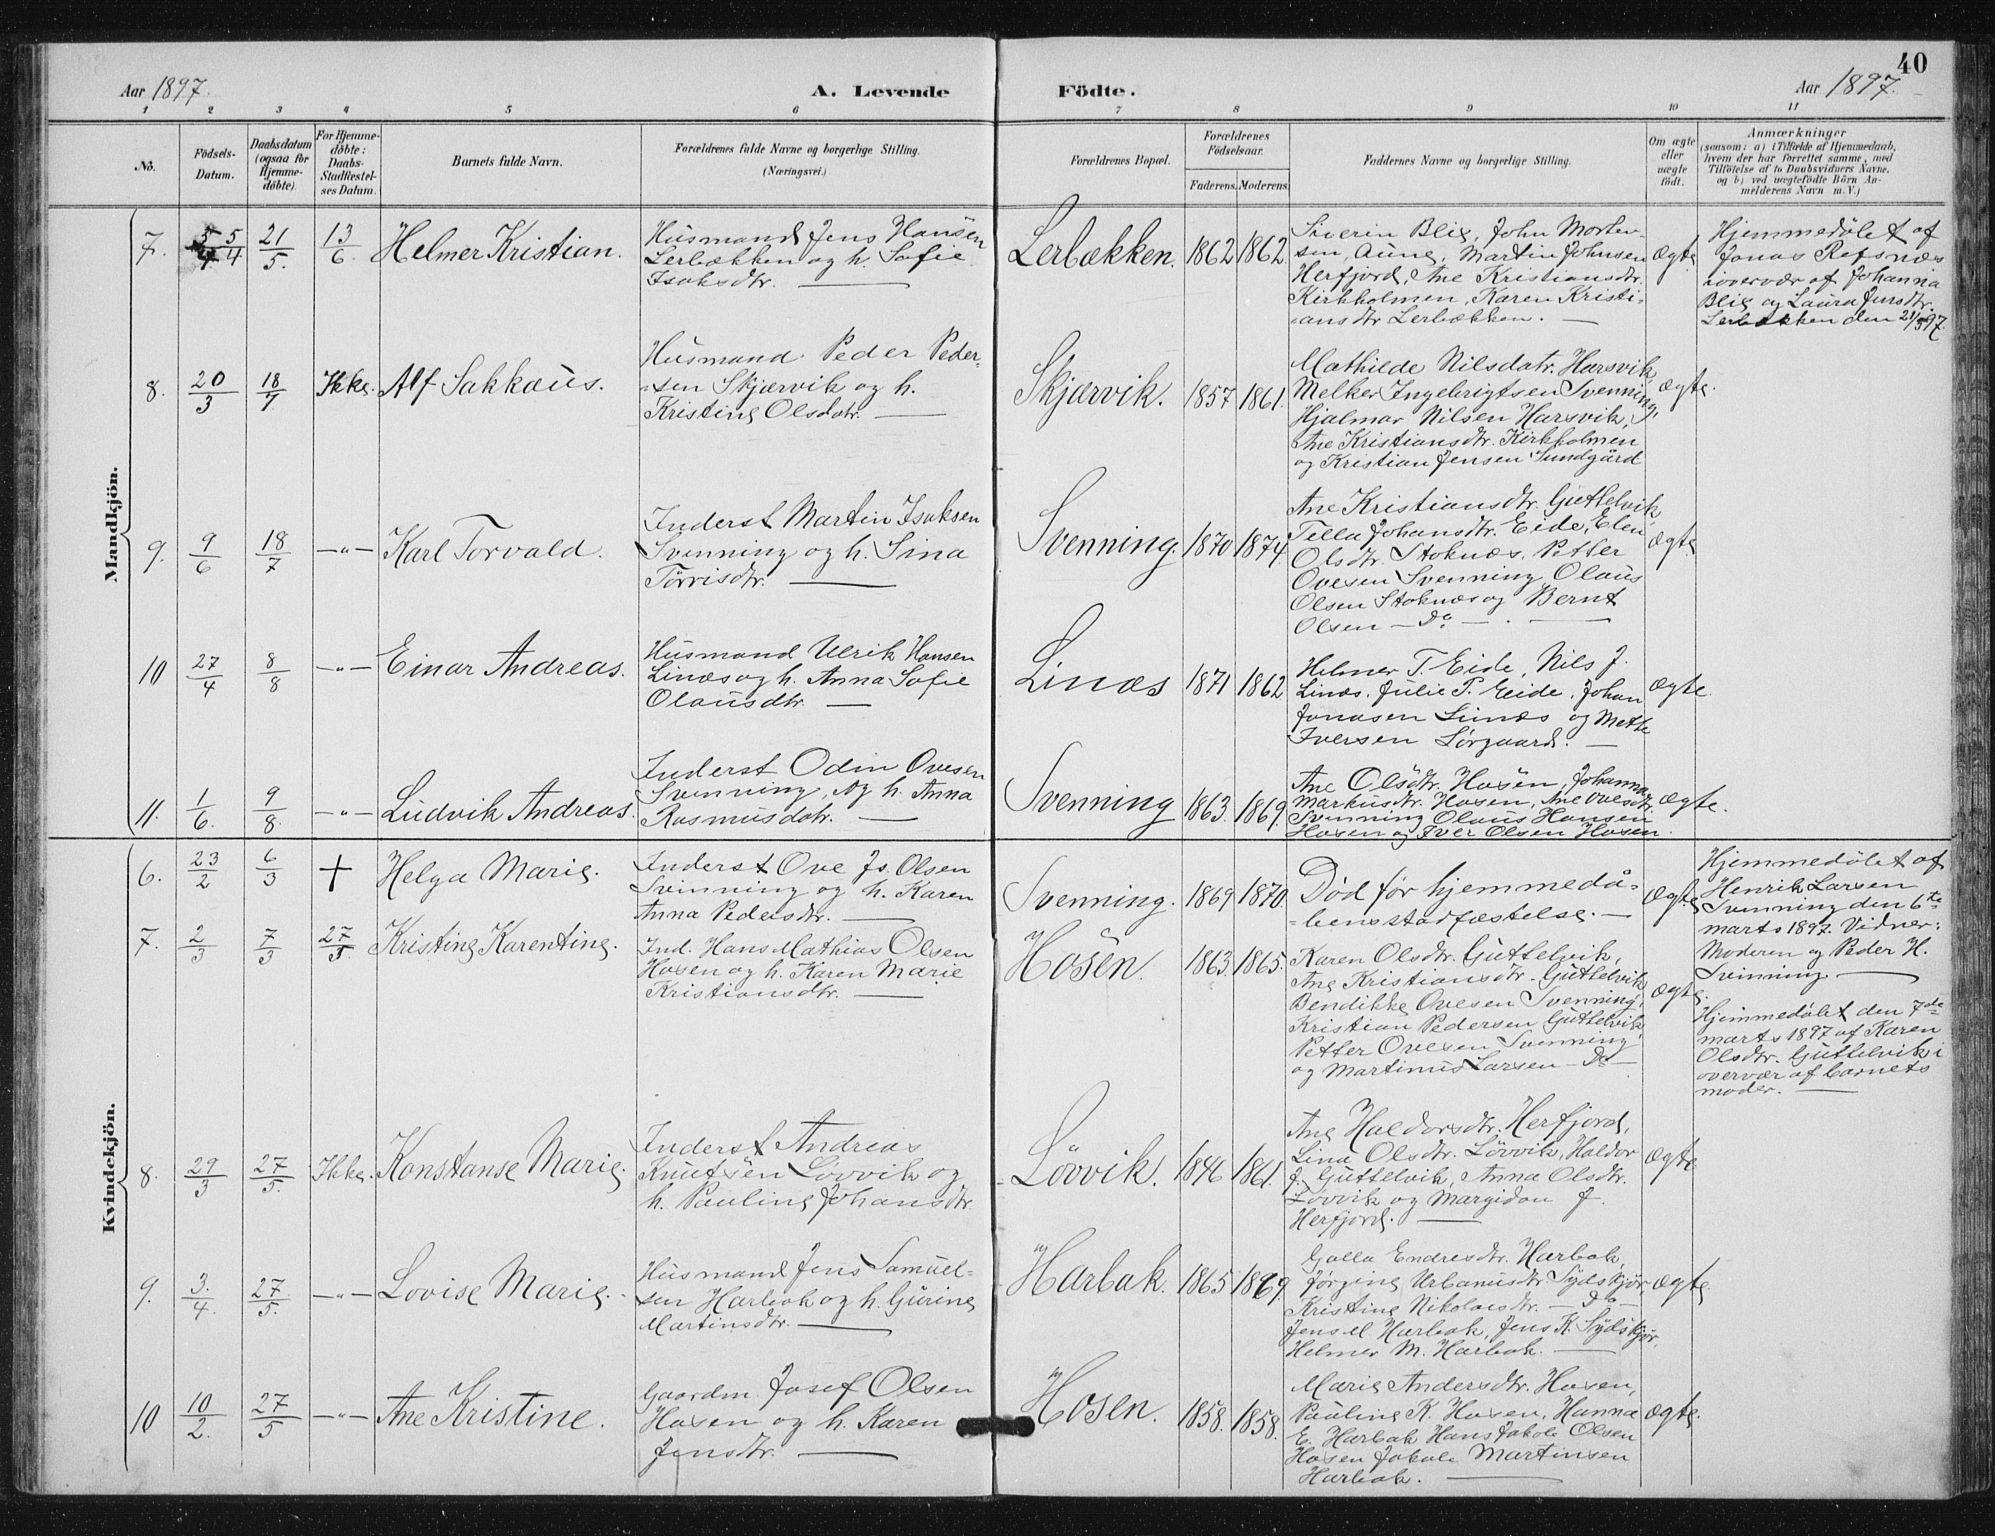 40
Aar 1897.
A. Levende
Födte.
Aar 1897.
1 2 3 4 5 6 7 8 9 10 11
No.
Födsels-
Datum.
Daabsdatum
(ogsaa for
Hjemme-
döbte).
For Hjemme-
döbte:
Daabs-
Stadfæstel-
ses Datum.
Barnets fulde Navn.
Forældrenes fulde Navne og borgerlige Stilling.
(Næringsvei.)
Forældrenes Bopæl.
Forældrenes
Födselsaar.
Faderens. Moderens.
Faddernes Navne og borgerlige Stilling.
Om ægte
eller
uægte
födt.
Anmærkninger
(saasom: a) i Tilfælde af Hjemmedaab,
hvem der har forrettet samme, med
Tilföielse af to Daabsvidners Navne.
og b) ved uægtefödte Börn An-
melderens Navn m. V.)
Mandkjön.
7. 5/4 21/5. 13/6 Helmer Kristian.
Husmand Jens Hansen
Lerbækken og h. Sofie
Isaksdtr. —
Lerbækken. 1862 1862.
Siverin Blig, John Morten-
sen, Aune, Martin Johnsen
Herfjord, Ane Kristiansdtr.
Kirkholmen, Karen Kristi-
ansdtr Lerbækken. —
Ægte
Hjemmedøbt af
Jonas Refsnæs
iovervær af Johanna
Blig og Laura Jensdtr.
Lerbækken den 21/5 97.
8. 20/3 18/7 Ikke. Alf Sakkæus.
Husmand Peder Peder-
sen Skjærvik og h.
Kristine Olsdatr. —
Skjærvik. 1857 1861.
Mathilde Nilsdatr. Harsvik
Melker Ingebrigtsen Svenning,
Hjalmar Nilsen Harsvik,
Ane Kristiansdtr. Kirkholmen
og Kristian Jensen Sundgård
Ægte.
9. 9/6 18/7 —"— Karl Torvald.
Inderst Martin Isaksen
Svenning og h. Sina
Tørrisdtr. —
Svenning. 1870 1874.
Ane Kristiansdtr. Guttelvik
Tella Johansdtr. Eide, Elen
Olsdtr. Stoknæs, Petter
Ovesen Svenning, Olaus
Olsen Stoknæs og Bernt
Olsen — Do — . —
Ægte
10 27/4 8/8 —"— Einar Andreas.
Husmand Ulrik Hansen
Linæs og h. Anna Sofie
Olausdtr. —
Linæs 1871 1862
Helmer T. Eide, Nils J.
Linæs, Julie P. Eide, Johan
Jonasen Linæs og Mette
Iversen Sørgaard. —
Ægte.
11. 1/6. 9/8. —"— Ludvik Andreas.
Inderst Odin Ovesen
Svenning, og h. Anna
Rasmusdatr. —
Svenning 1863. 1869.
Ane Olsdtr. Hosen, Johanna
Markusdtr. Hosen, Ane Ovesdtr.
Svenning Olaus Hansen
Hosen og Iver Olsen Hosen.
Ægte.
Kvindekjön.
6. 23/2 6/3 + Helga Marie.
Inderst Ove Js. Olsen
Svinning og h. Karen
Anna Pedersdtr. —
Svenning. 1869 1870.
Død før hjemmedå-
bens stadfæstelse. —
Ægte
Hjemmedøbt af
Henrik Larsen
Svinning den 6te
marts 1897. Vidner:
Moderen og Peder H.
Svinning —
7. 2/3 7/3 27/5 Kristine Karentine.
Ind. Hans Mathias Olsen
Hosen og h. Karen Marie
Kristiansdtr. —
Hosen. 1863. 1865.
Karen Olsdtr. Guttelvik,
Ane Kristiansdtr. Guttelvik
Bendikke Ovesen Svenning,
Kristian Pedersen Guttelvik,
Petter Ovesen Svenning
og Martinus Larsen — Do —
Ægte.
Hjemmedøbt den 7de
marts 1897 af Karen
Olsdtr. Guttelvik i
overvær af barnets
moder. —
8. 29/3 27/5. Ikke. Konstanse Marie.
Inderst Andreas
Knutsen Lövvik og
h. Pauline Johansdtr.
Lövvik. 1846 1861.
Ane Haldorsdtr. Herfjord,
Lina Olsdtr. Lövvik, Haldor
J. Guttelvik, Anna Olsdtr.
Lövvik og Margidon J.
Herfjord. —
Ægte
9. 3./4. 27/5. —"— Lovise Marie.
Husmand Jens Samuel-
sen Harbak og h. Gurine
Martinsdtr. —
Harbak. 1865 1869
Golla Endresdtr. Harbak,
Jørgine Urbanusdtr Sydskjør,
Kristine Nikolaisdtr. — Do —
Jens M Harbak, Jens K. Sydskjør,
Helmer M. Harbak. —
Ægte.
10 10/2. 27/5 —"— Ane Kristine.
Gaardm. Josef Olsen
Hosen og h. Karen
Jensdtr. —
Hosen. 1858. 1858.
Marie Andersdtr. Hosen,
Pauline K. Hosen, Hanna
E. Harbak Hans Jakob Olsen
Hosen Jakob Martinsen
Harbak. —
Ægte.